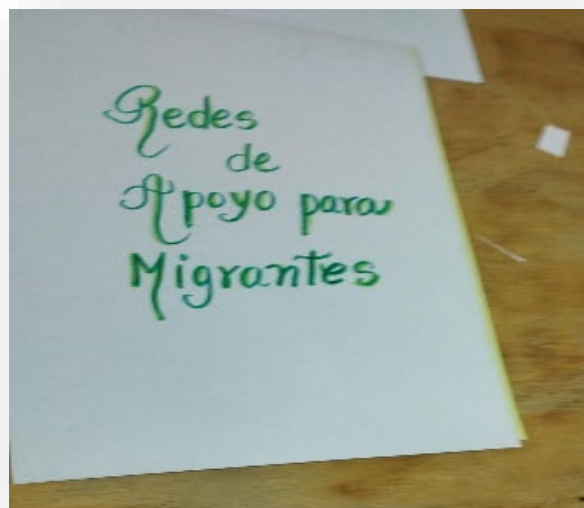 Redes
de
Apoyo para
Migrantes